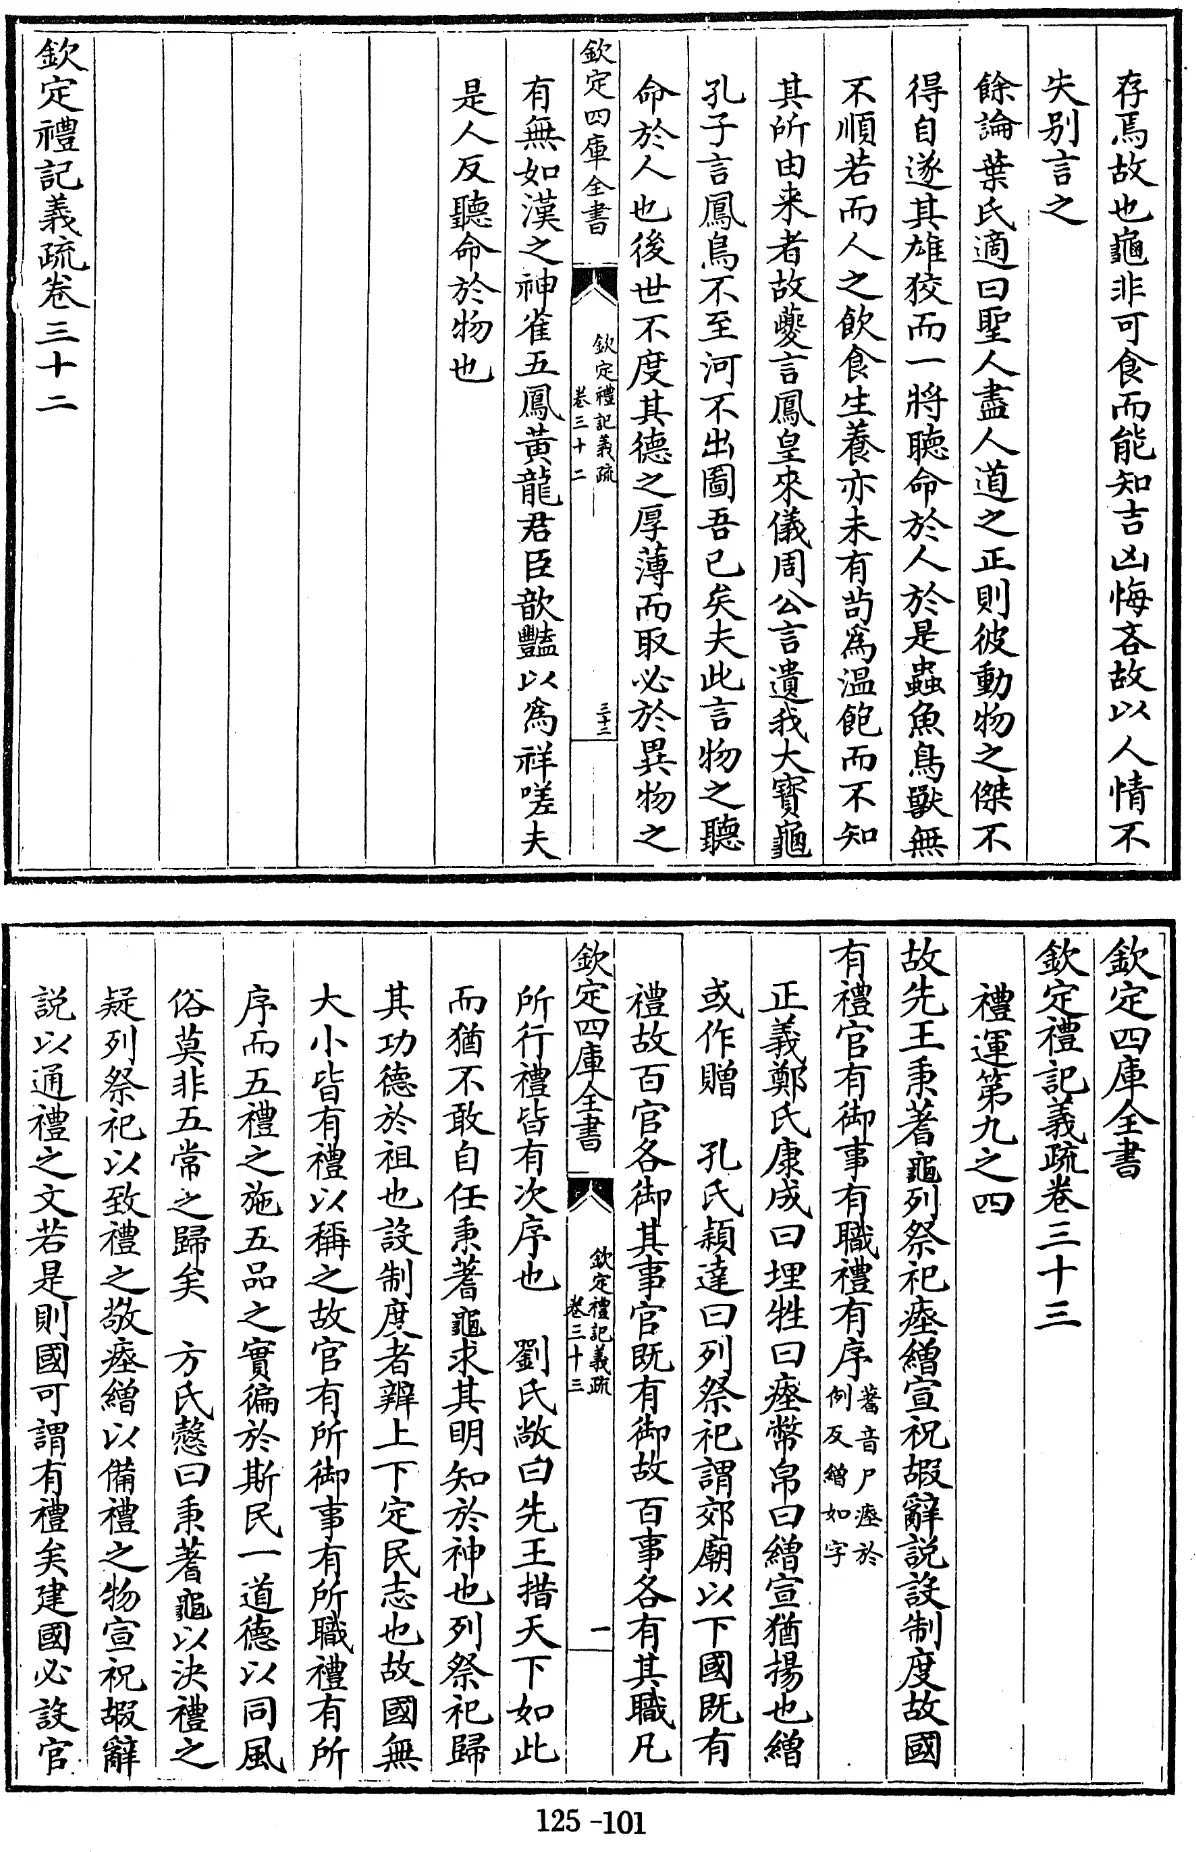 存焉故也龜非可食而能知吉凶悔吝故以人情不
失别言之
餘論葉氏適曰聖人盡人道之正則彼動物之傑不
得自遂其雄狡而一將聽命於人於是蟲魚鳥獸無
不順若而人之飲食生養亦未有茍為温飽而不知
其所由来者故夔言鳳皇來儀周公言遺我大寳龜
孔子言鳳鳥不至河不出圖吾已矣夫此言物之聽
命於人也後世不度其德之厚薄而取必於異物之
欽定四庫全書
欽定禮記義疏
卷三十二
三十二
有無如漢之神雀五鳳黄龍君臣歆豔以為祥嗟夫
是人反聽命於物也
欽定禮記義疏卷三十二
欽定四庫全書
欽定禮記義疏卷三十三
禮運第九之四
故先王秉蓍龜列祭祀瘞繒宣祝嘏辭説設制度故國
有禮官有御事有職禮有序
蓍音尸瘞於
例反繒如字
正義鄭氏康成曰埋牲曰瘞幣帛曰繒宣猶揚也繒
或作贈 孔氏穎達曰列祭祀謂郊廟以下國既有
禮故百官各御其事官既有御故百事各有其職凡
欽定四庫全書
欽定禮記義疏
卷三十三
一
所行禮皆有次序也 劉氏敞曰先王措天下如此
而猶不敢自任秉蓍龜求其明知於神也列祭祀歸
其功德於祖也設制度者辨上下定民志也故國無
大小皆有禮以稱之故官有所御事有所職禮有所
序而五禮之施五品之實徧於斯民一道德以同風
俗莫非五常之歸矣 方氏慤曰秉蓍龜以決禮之
疑列祭祀以致禮之敬瘞繒以備禮之物宣祝嘏辭
説以通禮之文若是則國可謂有禮矣建國必設官
125-101